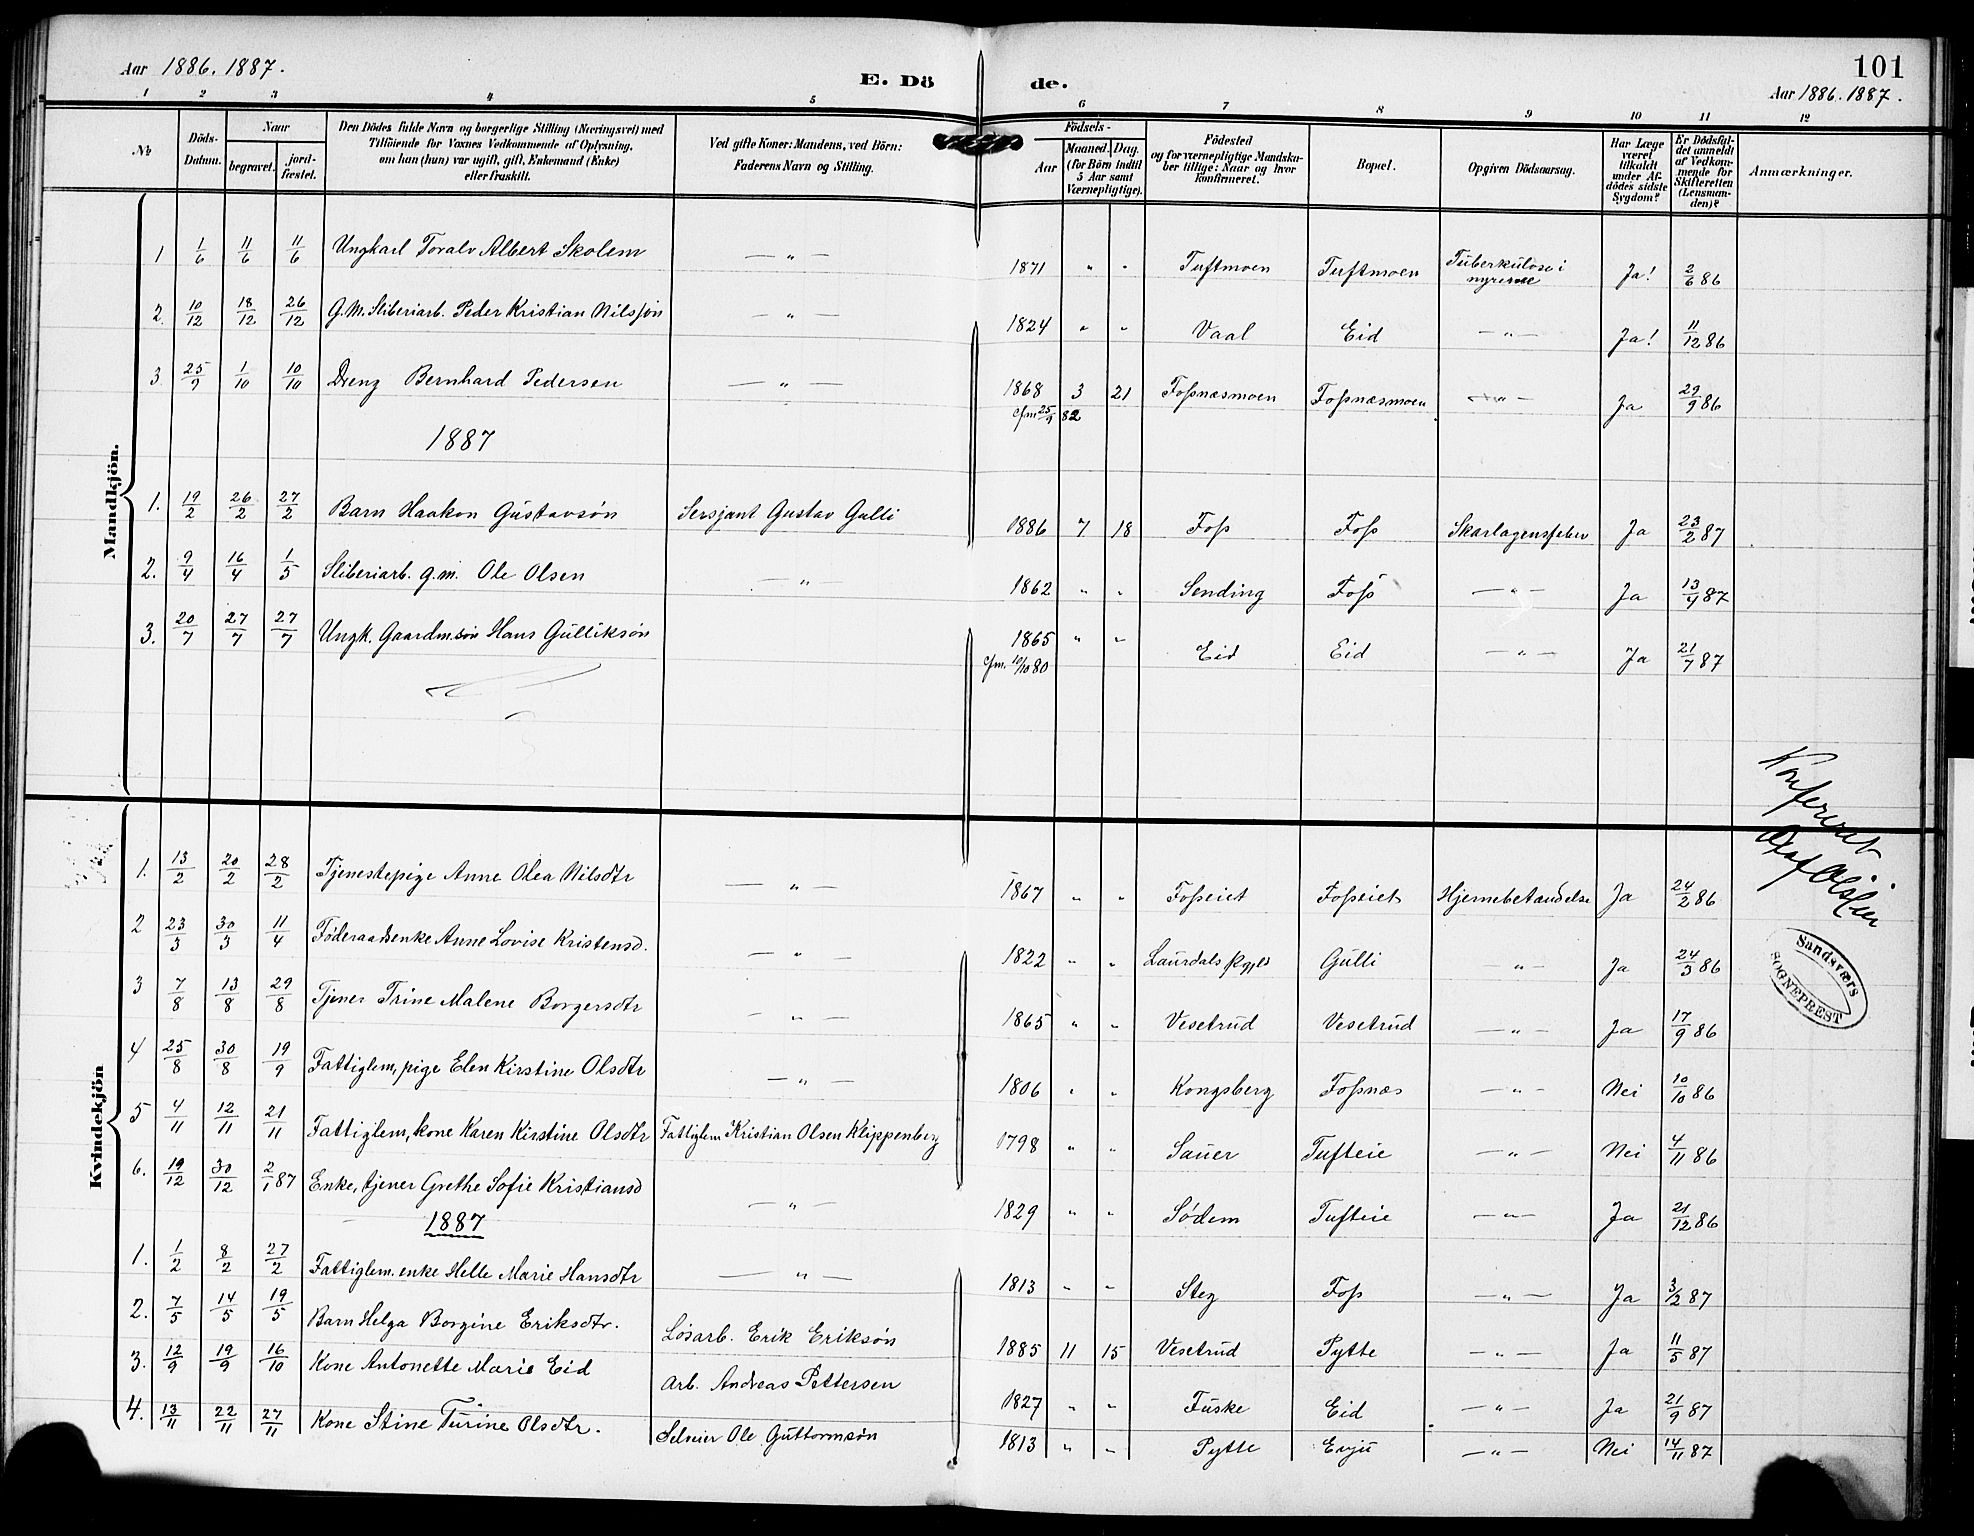 Aar 1886. 1887.
E. Dö de.
101
Aar 1886. 1887.
1 2 3 4 5 6 7 8 9 10 11 12
No
Döds-Datum.
Naar
begravet.
jord-fæstet.
Den Dödes fulde Navn og borgerlige Stilling (Næringsvei) med
Tilföiende for Voxnes Vedkommende af Oplysning,
om han (hun) var ugift, gift, Enkemand (Enke)
eller fraskilt.
Ved gifte Koner: Mandens, ved Börn:
Faderens Navn og Stilling.
Födsels-
Aar
Maaned. Dag.
(for Börn indtil
5 Aar samt
Værnepligtige).
Födested
og for værnepligtige Mandska-
ber tillige: Naar og hvor
konfirmeret.
Bopæl.
Opgiven Dödsaarsag.
Har Læge
været
tilkaldt
under Af-
dödes sidste
Sygdom?
Er Dödsfal-
det anmeldt
af Vedkom-
mende for
Skifteretten
(Lensman-
den)?
Anmærkninger.
Mandkjön.
1 1/6 11/6 11/6 Ungkarl Toralv Albert Skolem — " — 1871 " " Tuftmoen Tuftmoen Tuberkulose i nyrerne Ja! 2/6 86
2. 10/12 18/12 26/12 G.M. Sliberiarb. Peder Kristian Nilssøn — " — 1824 " " Vaal Eid — " — Ja! 11/12 86
3 25/9 1/10 10/10 Dreng Bernhard Pedersen — " — 1868 3 21 Fossnæsmoen Fossnæsmoen — " — Ja 29/9 86
cfm 25/9 82
1887
1. 19/2 26/2 27/2 Barn Haakon Gustavsøn Sersjant Gustav Gulli 1886 7 18 Foss Foss Skarlagensfeber Ja 23/2 87
2. 9/4 16/4 1/5 Sliberiarb. g.m. Ole Olsen — " — 1862 " " Sending Foss — " — Ja 13/4 87
3. 20/7 27/7 27/7 Ungk. Gaardm.søn Hans Gulliksøn 1865 " " Eid Eid — " — Ja 21/7 87
cfm. 10/10 80
Kvindekjön
1. 13/2 20/2 28/2 Tjenestepige Anne Olea Nilsdtr — " — 1867 " " Fosseiet Fosseiet Hjernebetændelse Ja 24/2 86
2 23/3 30/3 11/4 Føderaadsenke Anne Lovise Kristensd. — " — 1822 " " Laurdals pgjld Gulli — " — Ja 24/3 86
3 7/8 13/8 29/8 Tjener Trine Malene Borgersdtr — " — 1865 " " Vesetrud Vesetrud — " — Ja 17/9 86
4 25/8 30/8 19/9 Fattiglem, pige Elen Kirstine Olsdtr — " — 1806 " " Kongsberg Fossnæs — " — Nei 10/10 86
5 4/11 12/11 21/11 Fattiglem, kone Karen Kirstine Olsdtr Fattiglem Kristian Olsen Klippenberg 1798 " " Sauer Tufteie — " — Nei 4/11 86
6. 19/12 30/12 2/1 87 Enke, tjener Grethe Sofie Kristiansd — " — 1829 " " Sødem Tufteie — " — Ja 21/12 86
1887
1. 1/2 8/2 27/2 Fattiglem. enke Helle Marie Hansdtr — " — 1813 " " Steg Foss — " — Ja 3/2 87
2. 7/5 14/5 19/5 Barn Helga Borgine Eriksdtr. Løsarb. Erik Eriksøn 1885 11 15 Vesetrud Pytte — " — Ja 11/5 87
3. 12/9 19/9 16/10 Kone Antonette Marie Eid Arb. Andreas Pettersen 1827 " " Fuske Eid — " — Ja 21/9 87
4. 13/11 22/11 27/11 Kone Stine Turine Olsdtr. Selveier Ole Guttormsøn 1813 " " Pytte Evju — " — Nei 14/11 87
Konfereret
Sandsværs
SOGNEPREST